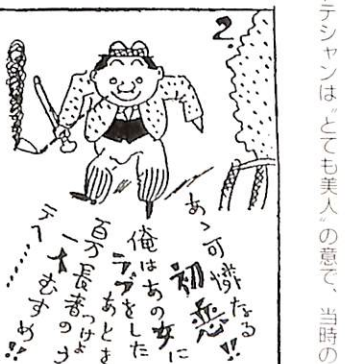 テシャンは〝とても美人〟の意で、当時の
2.
あゝ可憐なる
初恋!!
俺はあの女に
ラブをした
あとを
つけよ
百万長者の
むすめ!!